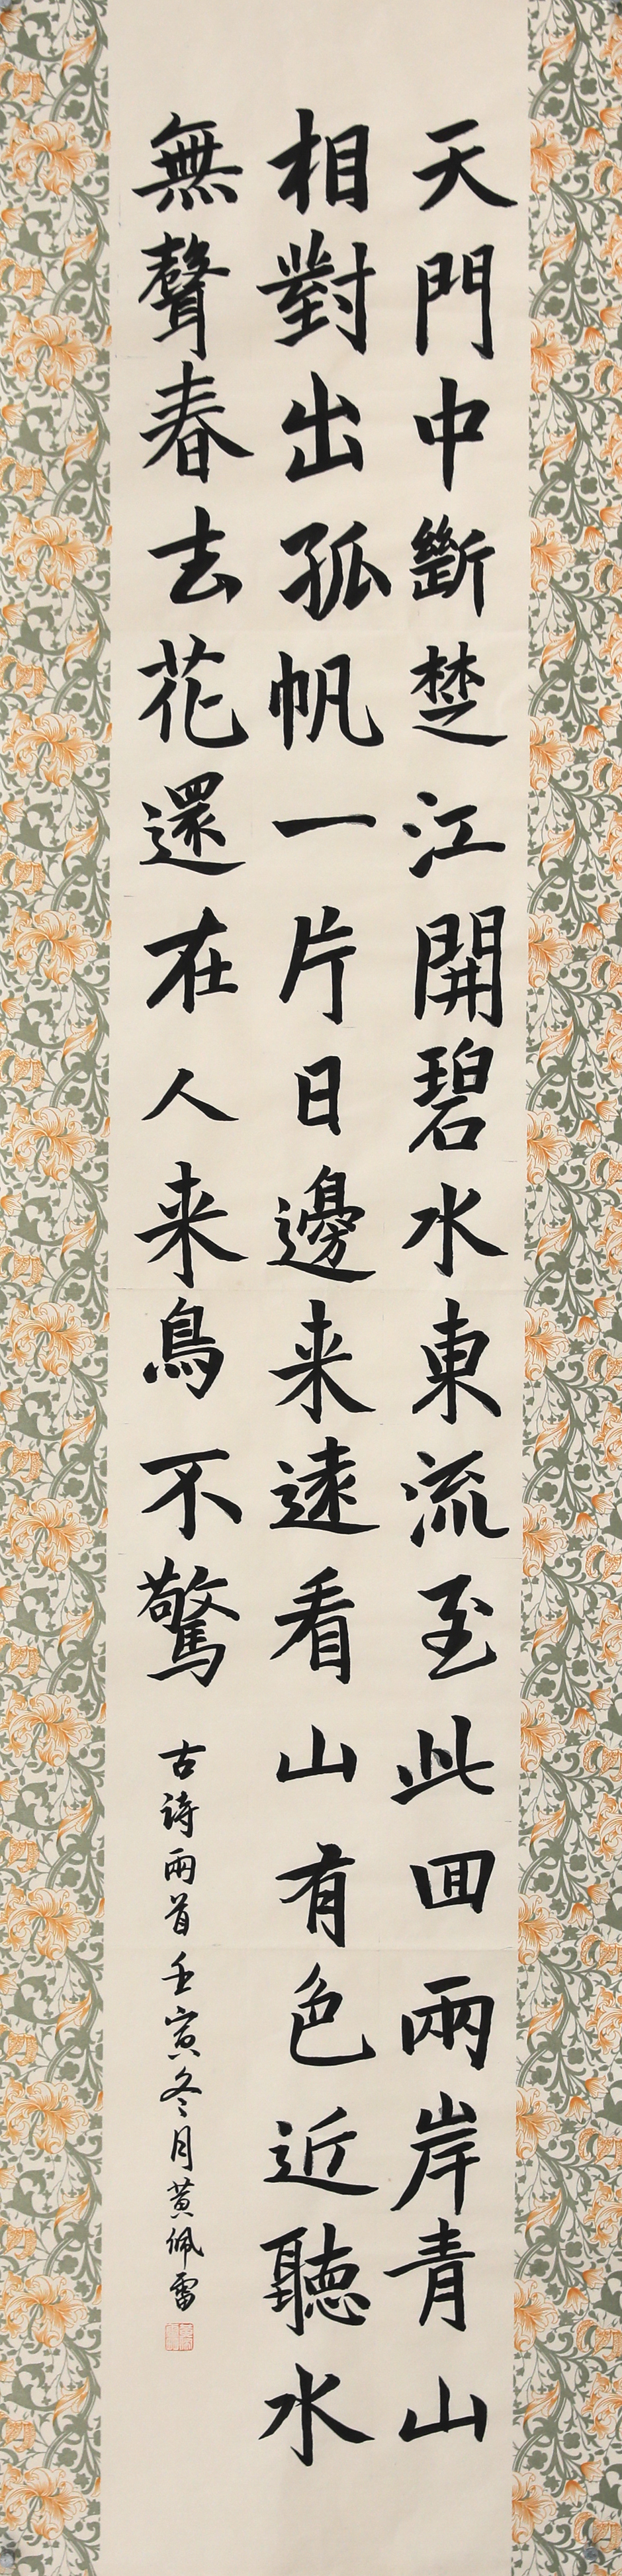 天門中斷楚江開碧水東流至此回兩岸青山
相對出孤帆一片日邊来遠看山有色近聽水
無聲春去花還在人来鳥不驚
古詩兩首壬寅冬月黄佩雷